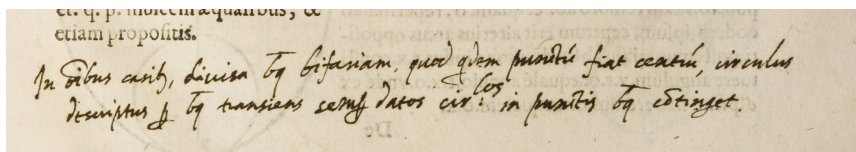 et. q. p. inuicem æqualibus, &
etiam propositis.
In oībus casib₉, diuisa bq bifariam, quod q̇dem punctū fiat centrū, circulus
descriptus ꝑ bq transiens semꝑ datos cir-los in punctis bq cōtinget.
De